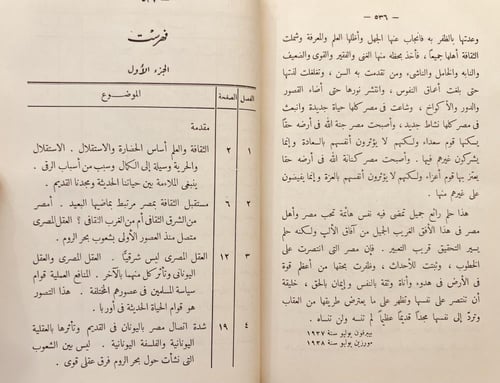 — ٥٣٦ —
وعدتها بالظفر به فانجاب عنها الجهل وأظلها العلم والمعرفة وشملت
الثقافة أهلها جميعاً ، فأخذ بحظه منها الغنى والفقير والقوى والضعيف
والنابه والخامل والناشئ ، ومن تقدمت به السن ، وتغلغلت لذتها
حتى بلغت أعماق النفوس ، وانتشر نورها حتى أضاء القصور
والدور والأكواخ ، وشاعت فى مصر كلها حياة جديدة وانبعث
فى مصر كلها نشاط جديد ، وأصبحت مصر جنة الله فى أرضه حقاً
يسكنها قوم سعداء ولكنهم لا يؤثرون أنفسهم بالسعادة وإنما
يشركون غيرهم فيها . وأصبحت مصر كنانة الله فى أرضه حقاً
يعتز بها قوم أعزاء ولكنهم لا يؤثرون أنفسهم بالعزة وإنما يفيضون
على غيرهم منها .
هذا حلم رائع جميل تمضى فيه نفس هائمة تحب مصر وأهل
مصر فى هذا الأفق الغريب الجميل من آفاق الألب ولكنه حلم
يسير التحقيق قريب التعبير . فإن مصر التى انتصرت على
الخطوب ، وثبتت للأحداث ، وظفرت بحقها من أعظم قوة
فى الأرض فى هدوء وأناة وثقة بالنفس وإيمان بالحق ، خليقة
أن تنتصر على نفسها وتظهر على ما يعترض طريقها من العقاب
وتردّ إلى نفسها مجداً قديماً عظيماً لم تنسه ولن تنساه .
يوليو سنة ١٩٣٧
مورزين يوليو سنة ١٩٣٨
فهرست
الجزء الأول
الفصل الصفحة الموضوع
مقدمة
١ ٢ الثقافة والعلم أساس الحضارة والاستقلال . الاستقلال
والحرية وسيلة إلى الكمال وسبب من أسباب الرقى .
ينبغى الملاءمة بين حياتنا الحديثة ومجدنا القديم .
٢ ٦ مستقبل الثقافة بمصر مرتبط بماضيها البعيد . أمصر
من الشرق الثقافى أم من الغرب الثقافى ؟ العقل المصرى
متصل منذ العصور الأولى بشعوب بحر الروم .
٣ ١٢ العقل المصرى ليس شرقياً . العقل المصرى والعقل
اليونانى وتأثر كل منهما بالآخر . المنافع العملية قوام
سياسة المسلمين فى عصورهم المختلفة . هذا التصور
هو قوام الحياة الحديثة فى أوربا .
٤ ١٩ شدة اتصال مصر باليونان فى القديم وتأثرها بالعقلية
اليونانية والفلسفة اليونانية . ليس بين الشعوب
التى نشأت حول بحر الروم فرق عقلى قوى .